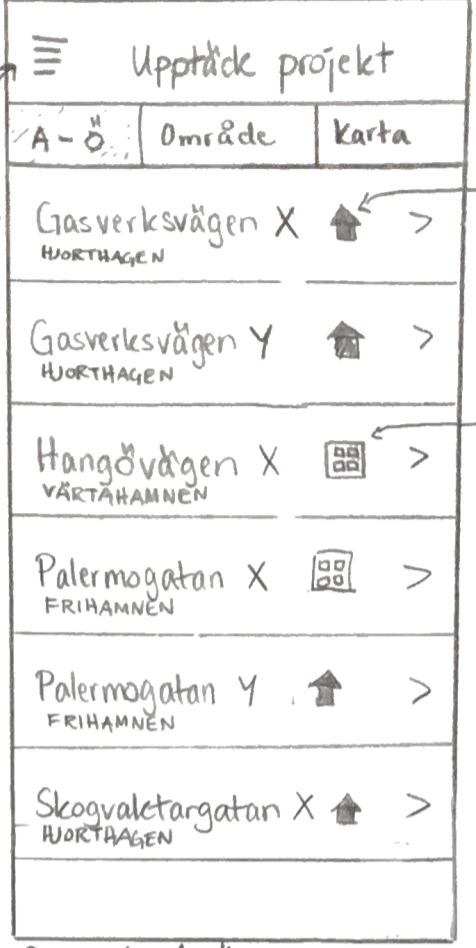 Upptäck projekt
A - Ö
Område
Karta
Gasverksvägen X
HJORTHAGEN
>
Gasverksvägen Y
HJORTHAGEN
>
Hangövägen X
VÄRTAHAMNEN
>
Palermogatan X
FRIHAMNEN
>
Palermogatan Y
FRIHAMNEN
>
Skogvaktargatan X
HJORTHAGEN
>